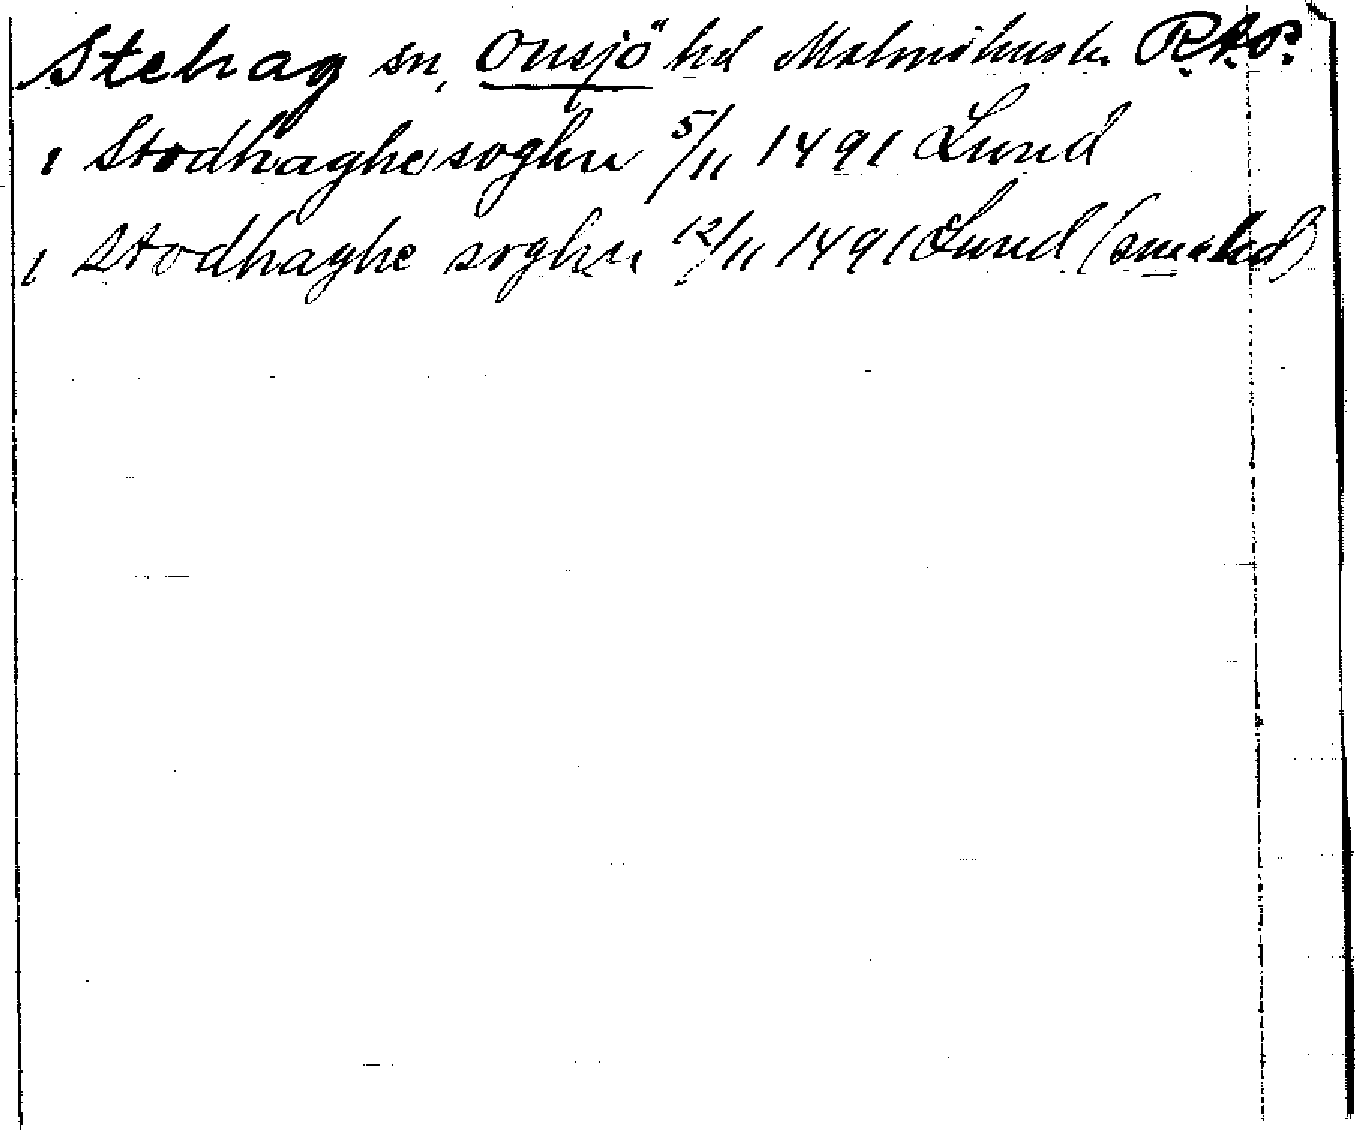 Stehag sn, Onsjö hd Malmöhus l. RAP.
i Stodhaghe soghn 5/11 1491 Lund
i Stodhaghe soghn 12/11 1491 Lund